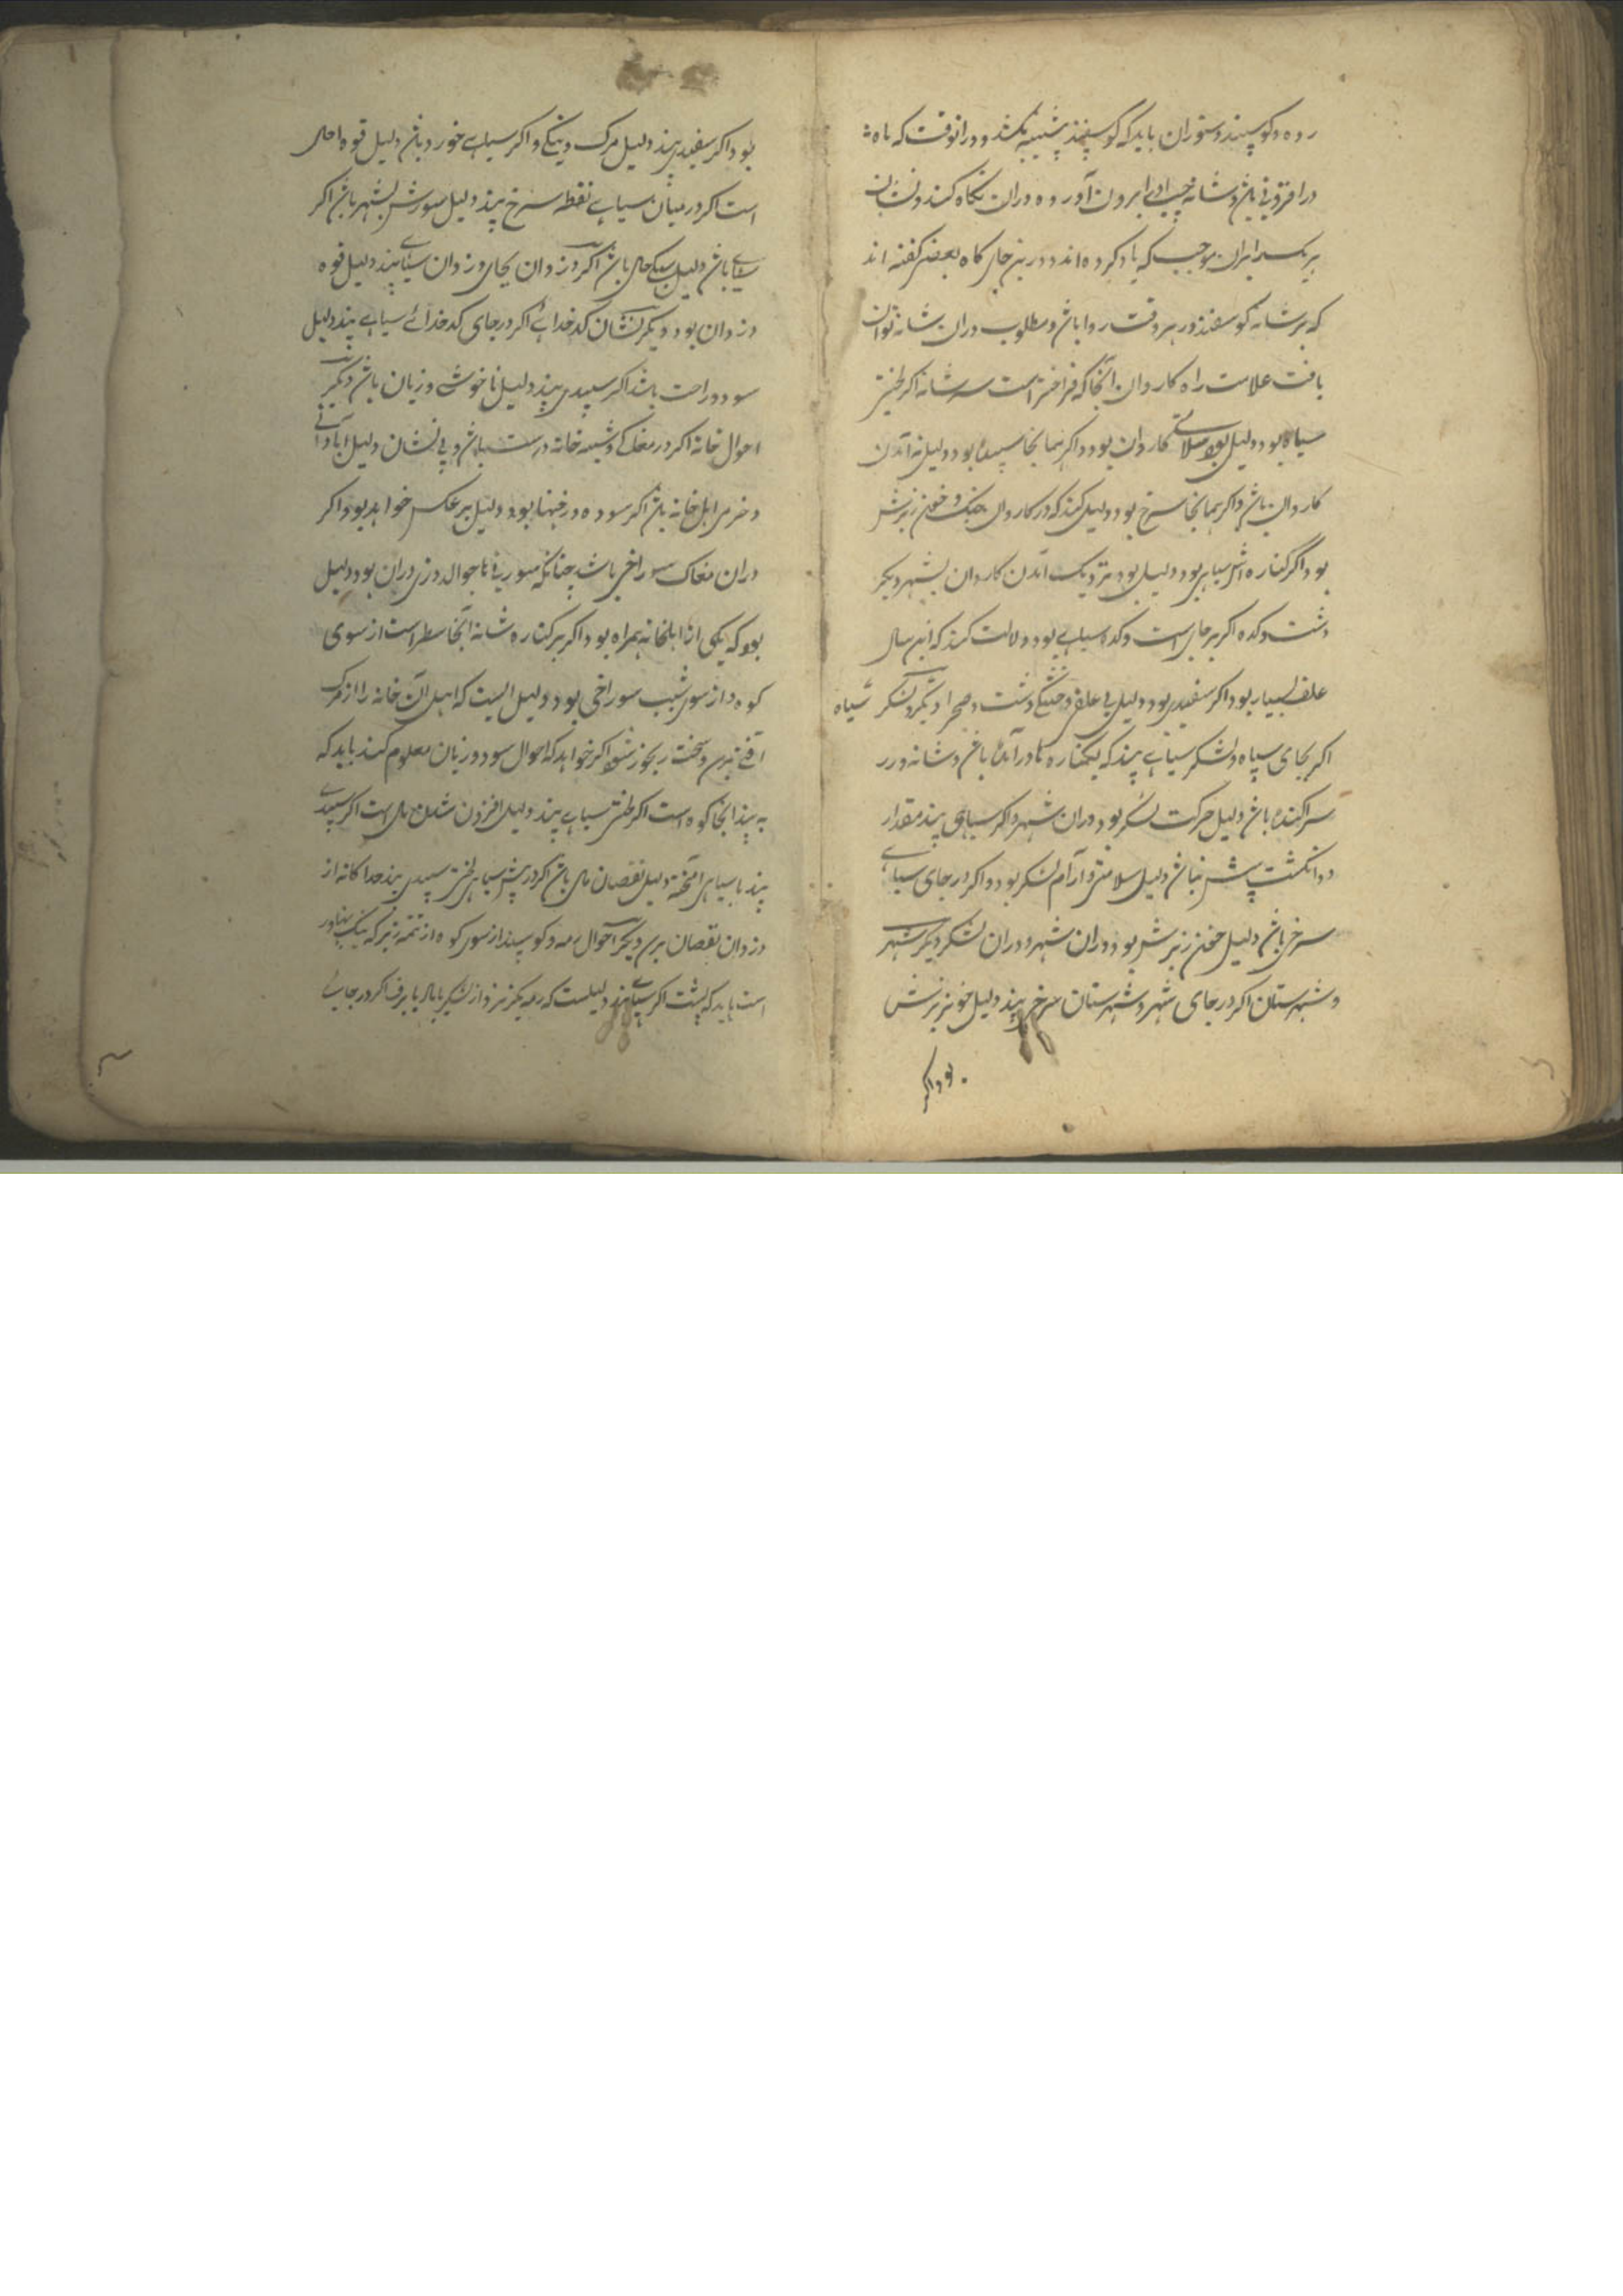 رمه و گوسپند و ستوران باید که گوسفند شیشه بکشد و درانوقت که ماه
در افزونی باشد و شانه چپ او را برون آورده و دران نگاه کند و نشان
هر یک را بران موجب که یاد کرده‌اند و درین جایگاه بعضی گفته اند
که بر شانه گوسفند در هر وقت روا باشد و مطلوب دران شانه توان
یافت علامت راه کاروان انجا که فراخترست سر شانه اگر لختی
سیاه بود دلیل بود سلامتی کاروان بود و اگر همانجا سپید بود دلیل نه آمدن
کاروان باشد و اگر همانجا سرخ بود دلیل کند که در کاروان جنگ و خون ریزش
بود اگر کناره اش سیاهی بود دلیل بود نزدیک آمدن کاروان بشهر دیگر
دشت و کده اگر بر جای است و کده سیاهی بود دلالت کند که این سال
علف بسیار بود اگر سفیدی بود دلیل بی علفی و خشکی دشت و صحرا دیگر لشکر سپاه
اگر بجای سپاه و لشکر سیاهی بیند که بکناره تا درآمده باشد و شانه در
سراکنده باشد دلیل حرکت لشکر بود دران شهر و اگر سیاهی بیند مقدار
دو انگشت پیش نباشد دلیل سلامتی و آرام لشکر بود و اگر در جای سیاهی
سرخ باشد دلیل خون ریزش بود دران شهر و دران لشکر دیگر شهر
و شهرستان اگر در جای شهر و شهرستان سرخ بیند دلیل خونریزش
بود اگر
بود اگر سفیدی بیند دلیل مرگ و تنگی و اگر سیاهی خورد باشد دلیل قوه احوال
است اگر در میان سیاهی نقطه سرخ بیند دلیل شورش بشهر باشد اگر
سپیدی باشد دلیل نیکی حال باشد دیگر دزدان اگر بجای دزدان سیاهی بیند دلیل قوه
دزدان بود دیگر نشان کدخدائی اگر در جای کدخدائی سیاهی بیند دلیل
سود و راحت باشد اگر سپیدی بیند دلیل ناخوشی و زیان باشد دیگر
احوال خانه اگر در مغاکی و شیشه خانه درست باشد و بی نشان دلیل آبادانی
و خرمی اهل خانه باشد اگر سوده و رخنها بود دلیل بر عکس خواهد بود و اگر
دران مغاک سوراخی باشد چنانکه سوزنی یا جوالدوزی دران بود دلیل
بود که یکی از اهلخانه همراه بود و اگر بر کناره شانه آنجا سطراست از سوی
کوه و از سوی شیب سوراخی بود دلیل انست که اهل آن خانه را از مرگ
آفتی نرسد و سخت رنجور شود اگر خواهد که احوال سود و زیان معلوم کند باید که
به بیند آنجا کوه است اگر لختی سیاهی بیند دلیل افزون شدن مال است اگر سپیدی
بیند با سیاهی آمیخته دلیل نقصان مال باشد اگر در پیش سیاهی لختی سپیدی بیند جداگانه از
دزدان نقصان برسد دیگر احوال رمه و گوسپند از سوی کوه از تتمه زیر که نیک پهناور
است باید که پشت اگر سپیدی بیند دلیلست که رمه بگریزد از لشکر یا باد یا برف اگر در جای